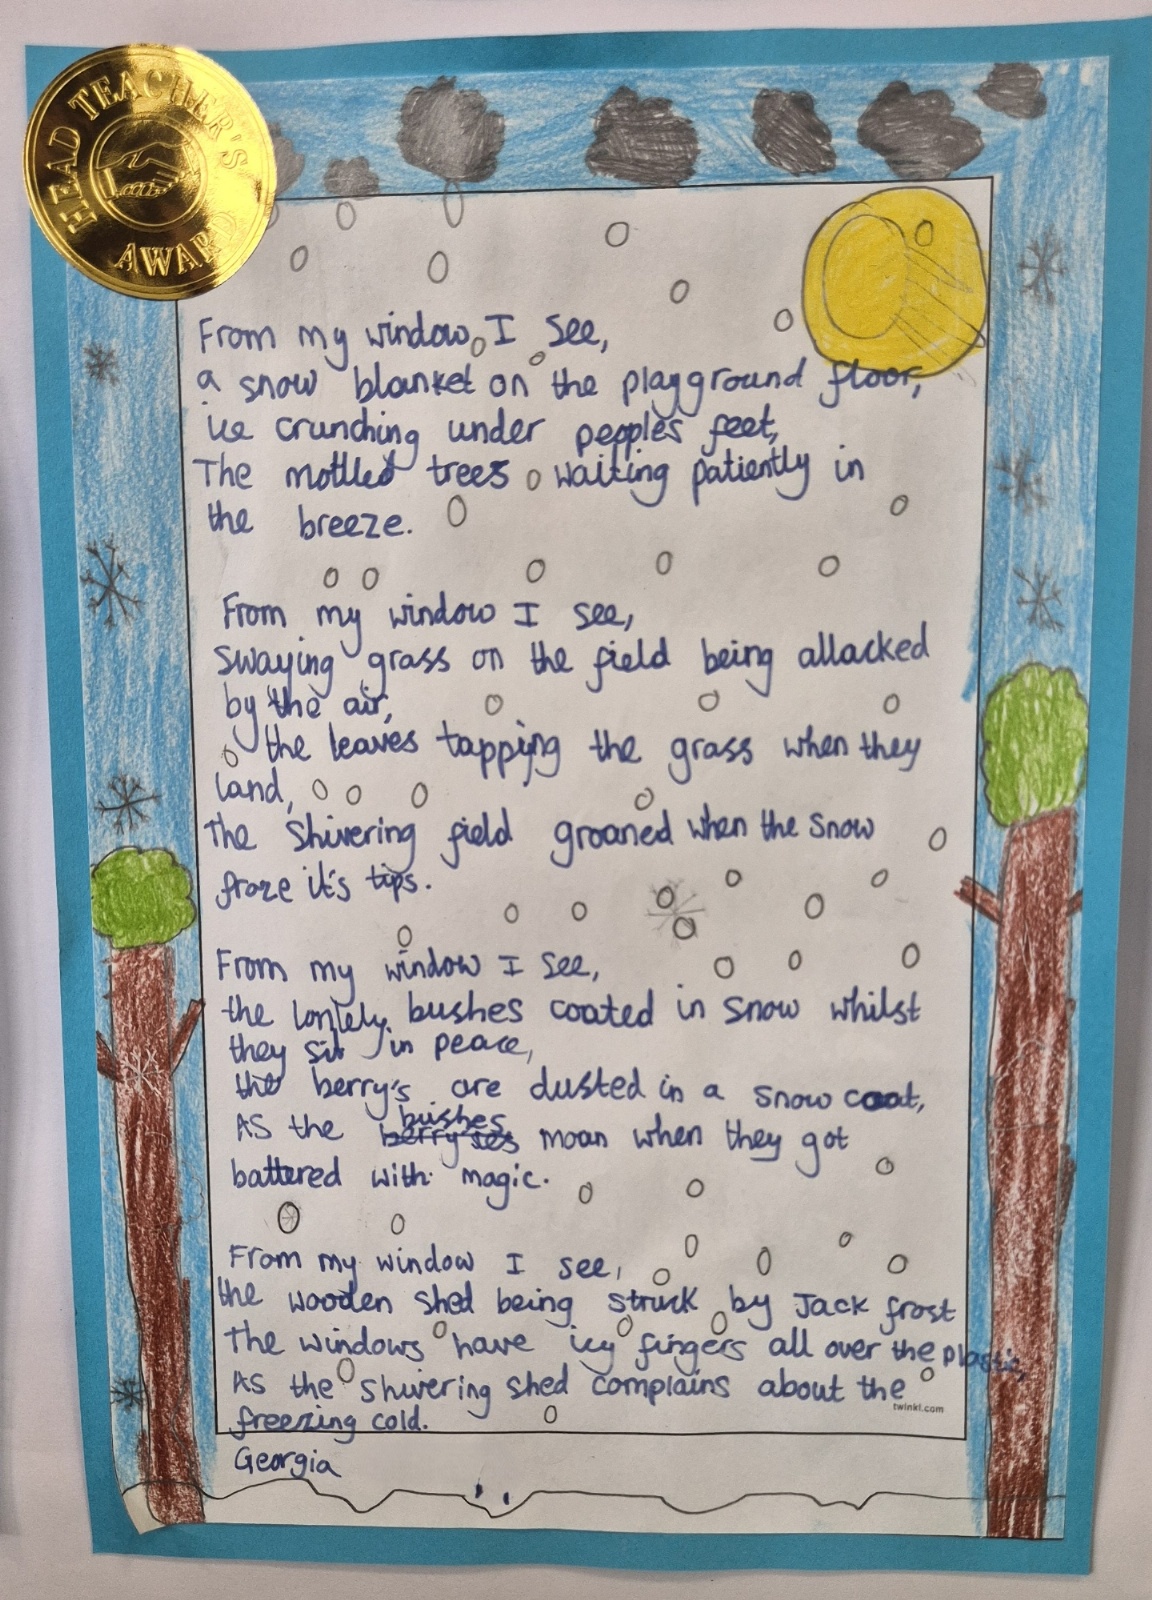 HEAD TEACHER'S AWARD
From my window I see,
a snow blanket on the playground floor,
ice crunching under peoples feet,
The mottled trees waiting patiently in
the breeze.
From my window I see,
swaying grass on the field being attacked
by the air,
the leaves tapping the grass when they
land,
The shivering field groaned when the snow
froze it's tips.
From my window I see,
the lonely bushes coated in snow whilst
they sit in peace,
the berry's are dusted in a snow coat,
As the bushes moan when they got
battered with magic.
From my window I see,
the wooden shed being struck by Jack frost
The windows have icy fingers all over the plastic,
As the shivering shed complains about the
freezing cold.
twinkl.com
Georgia